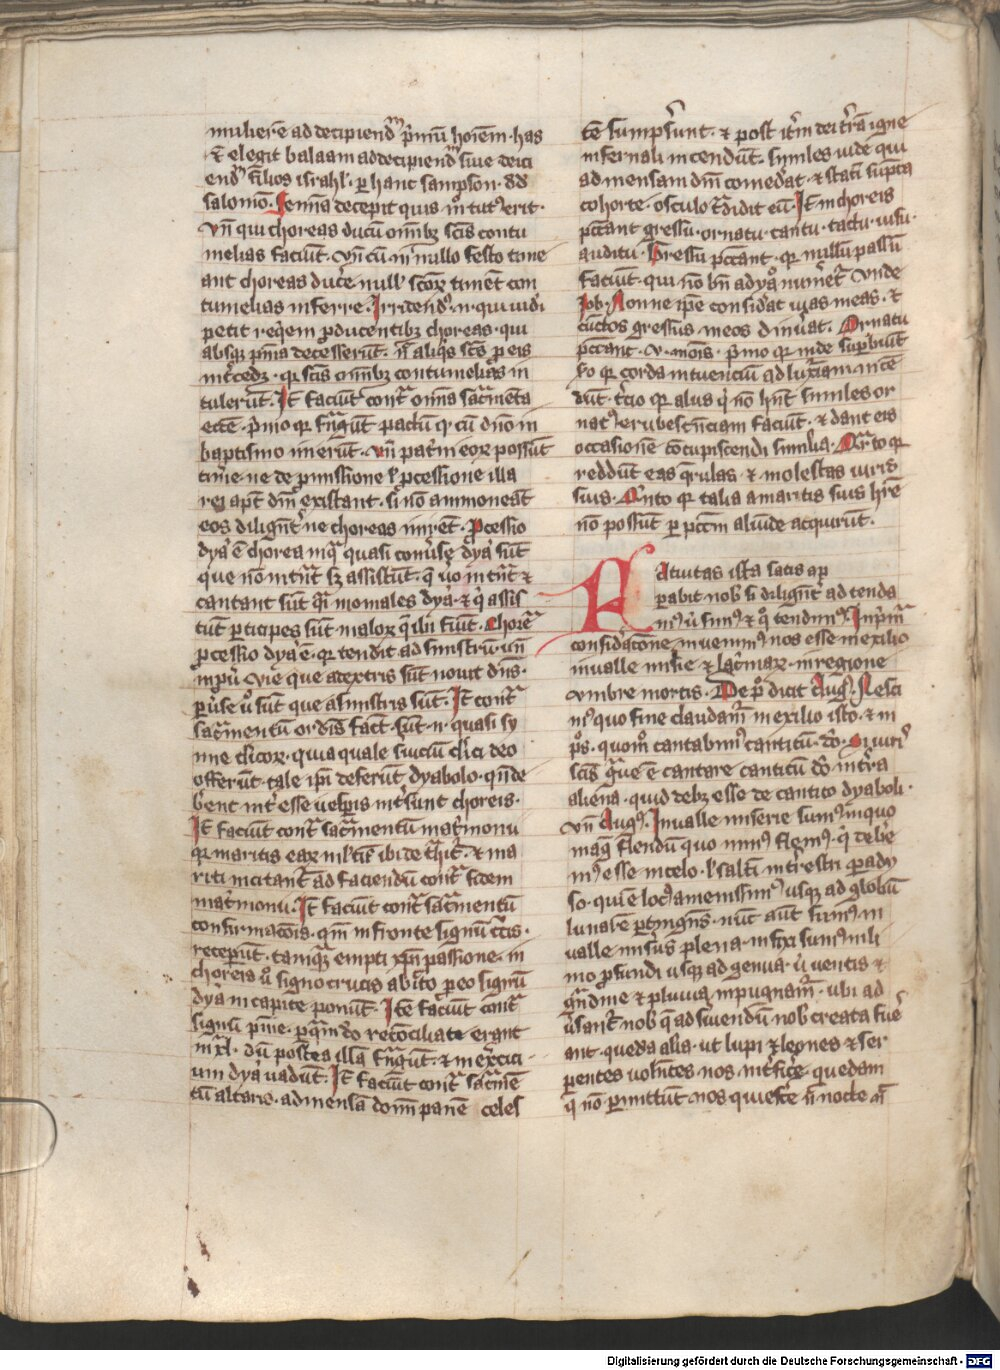 mulierē ad decipiend' p̄mū hoīem · has
⁊ elegit balaam ad decipiend' siue deici
end' filios israhl' · per hanc sampson · dd
salomō · Femīa decepit quis m̊ tut' erit ·
Vn̄ qui choreas ducū omībꝫ scīs contu
melias faciūt · Vn̄ cū in nullo festo tone
ant choreas duce᷑ null' scoꝝ timēt con
tumelias inferre · Irridend' · n · qui uidi
petit req̄em ꝓ ducentibꝫ choreas · qui
absqꝫ pn̄ia decesserūt · n̄ aliq's scs̄ ꝓ eis
int'cedꝫ · qꝛ scīs omībꝫ contumelias in
tulerūt · It faciūt cont᷑ om̄ia sac᷑menta
eccē · p̄mo qꝛ frīgūt pactū q' cū dn̄o in
baptismo inierūt · vn̄ pat'ni eoꝝ possūt
tim'e · ne de ꝓmissione l' ꝓcessione illa
rei apt' dm̄ existant · si nō ammoneāt
eos diligēt' ne choreas inirēt · Pcessio
dya' ē chorea in q᷑ quasi con'use dya' sūt
que nō int'ūt sꝫ assistūt · q̄ u'o int'ūt ⁊
cantant sūt q᷑ı moniales dya' · ⁊ q' assis
tūt participes sūt maloꝝ q̄ ibi fiūt · Chore᷑
ꝓcessio dya' ē · qꝛ tendit ad sinistrū · vn̄
in pū · Vie que a dextris sūt nouit dn̄s ·
ꝑu'se u᷑o sūt que a sinistris sūt · It cont᷑
sac᷑mentū or'dis fac't · sūt · n · quasi sy
mie clicoꝝ · quia quale s'uiciū cl'ici deo
offerūt · tale ip̄i deferūt dyabolo · qn̄ de
b'ent int'esse uesp̄is int'sunt choreis ·
It faciūt cont᷑ sac᷑mentū mat'imonii
qꝛ maritis eaꝝ m'lt' ibi de t᷑hit᷑ · ⁊ ma
riti incitant᷑ ad faciendū cont᷑ fidem
mat'imonii · It faciūt cont᷑ sac᷑mentū
confirmac̄ōis · qm̄ in fronte signū c᷑cis ·
receperūt · tamqꝫ empti xp̄ı passione · in
choreis u᷑o signo crucis abi'to ꝓ eo signū
dya' in capite ponūt · Itē faciūt cont᷑
signū pn̄ie · ꝑ q᷑m do reconciliate erant
in xl' · dū postea illā fr̄igūt · ⁊ in ex'cici
um dya' uadūt · It faciūt cont᷑ sac᷑mē
tū altaris · ad mensā domī panē celes
tē sumps'unt · ⁊ post it'm dei t'rā igne
infernali incendūt · similes iude qui
ad mensam dm̄ comedat · ⁊ statī sūpta
cohorte · osculo t᷑didit eū · It in choreis
pc̄cant gressu · ornatu · cantu · tactu · uisu ·
auditu · Gressu pc̄cant · qꝛ nullū passū
faciūt · qui nō bn̄ a dya'o num'et᷑ Vnde
Job · Nonne ip̄e considat uias meas · ⁊
cūctos gressus meos dinu'at · Ornatu
pc̄cant · v · mois · p̄mo qꝛ inde sup̄biūt
s'o qꝛ corda intuenciū ad lux'iam incē
dūt · t'cio qꝛ aliis q' nō hn̄t similes or
nat' erubescēciam faciūt · ⁊ dant eis
occasionē cōcupiscendi similia · Qr̄to qꝛ
reddūt eas q̄rulas · ⁊ molestas uiris
suis · Qn̄to qꝛ talia a maritis suis hr̄e
nō possūt per pc̄cm aliūde acquirūt ·
Natiuitas ista satis ap
parebit nob' si diligēt' ad tenda
m' u' sum' ⁊ q̊ tendim' · In p̄m᷑
considac̄one inuenim' nos esse in exilio
in ualle mis'ie ⁊ lac'maꝝ · in regione
vmbre mortis · De p̊ dicit Aug' · Nesci
m' quo fine claudam᷑ in exilio isto · ⁊ in
ps̄ · quom̊ cantabim' canticū · do · Si uiri
scīs g᷑ue ē cantare canticū do in t'ra
aliena · quid debꝫ esse de cantico dyaboli ·
Vn̄ Aug' · In ualle miserie sum' in quo
mag' flendū quo min' flem' · q' debe᷑
m' esse in celo · l' saltī in t'restri parady
so · qui ē loc' amenissim' usqꝫ ad globū
lunarē ꝑtingēs · nūc aūt sum' in
ualle mis'iis plena · infixi sum' in li
mo ꝓfundi usqꝫ ad genua · u' uentis ⁊
g᷑ndine ⁊ pluuia inpugnam᷑ · ubi ad
u'sant᷑ nob' q̄ ad s'uiendū nob' creata fue᷑
ant · quedā alia · ut lupi ⁊ leones ⁊ ser
pentes uolētes nos int'fice᷑ · quedam
q̄ nō ꝑmittūt nos quiesc'e n̄ nocte n̄